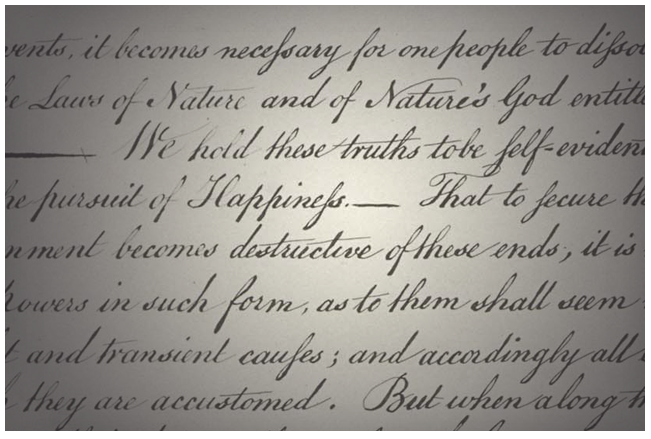 vents, it becomes neceſsary for one people to diſsol
he Laws of Nature and of Nature's God entitle
We hold these truths to be ſelf-eviden
he pursuit of Happineſs.— That to ſecure th
nment becomes destructive of these ends, it is
Powers in such form, as to them shall seem
t and transient cauſes; and accordingly all
h they are accustomed. But when a long t